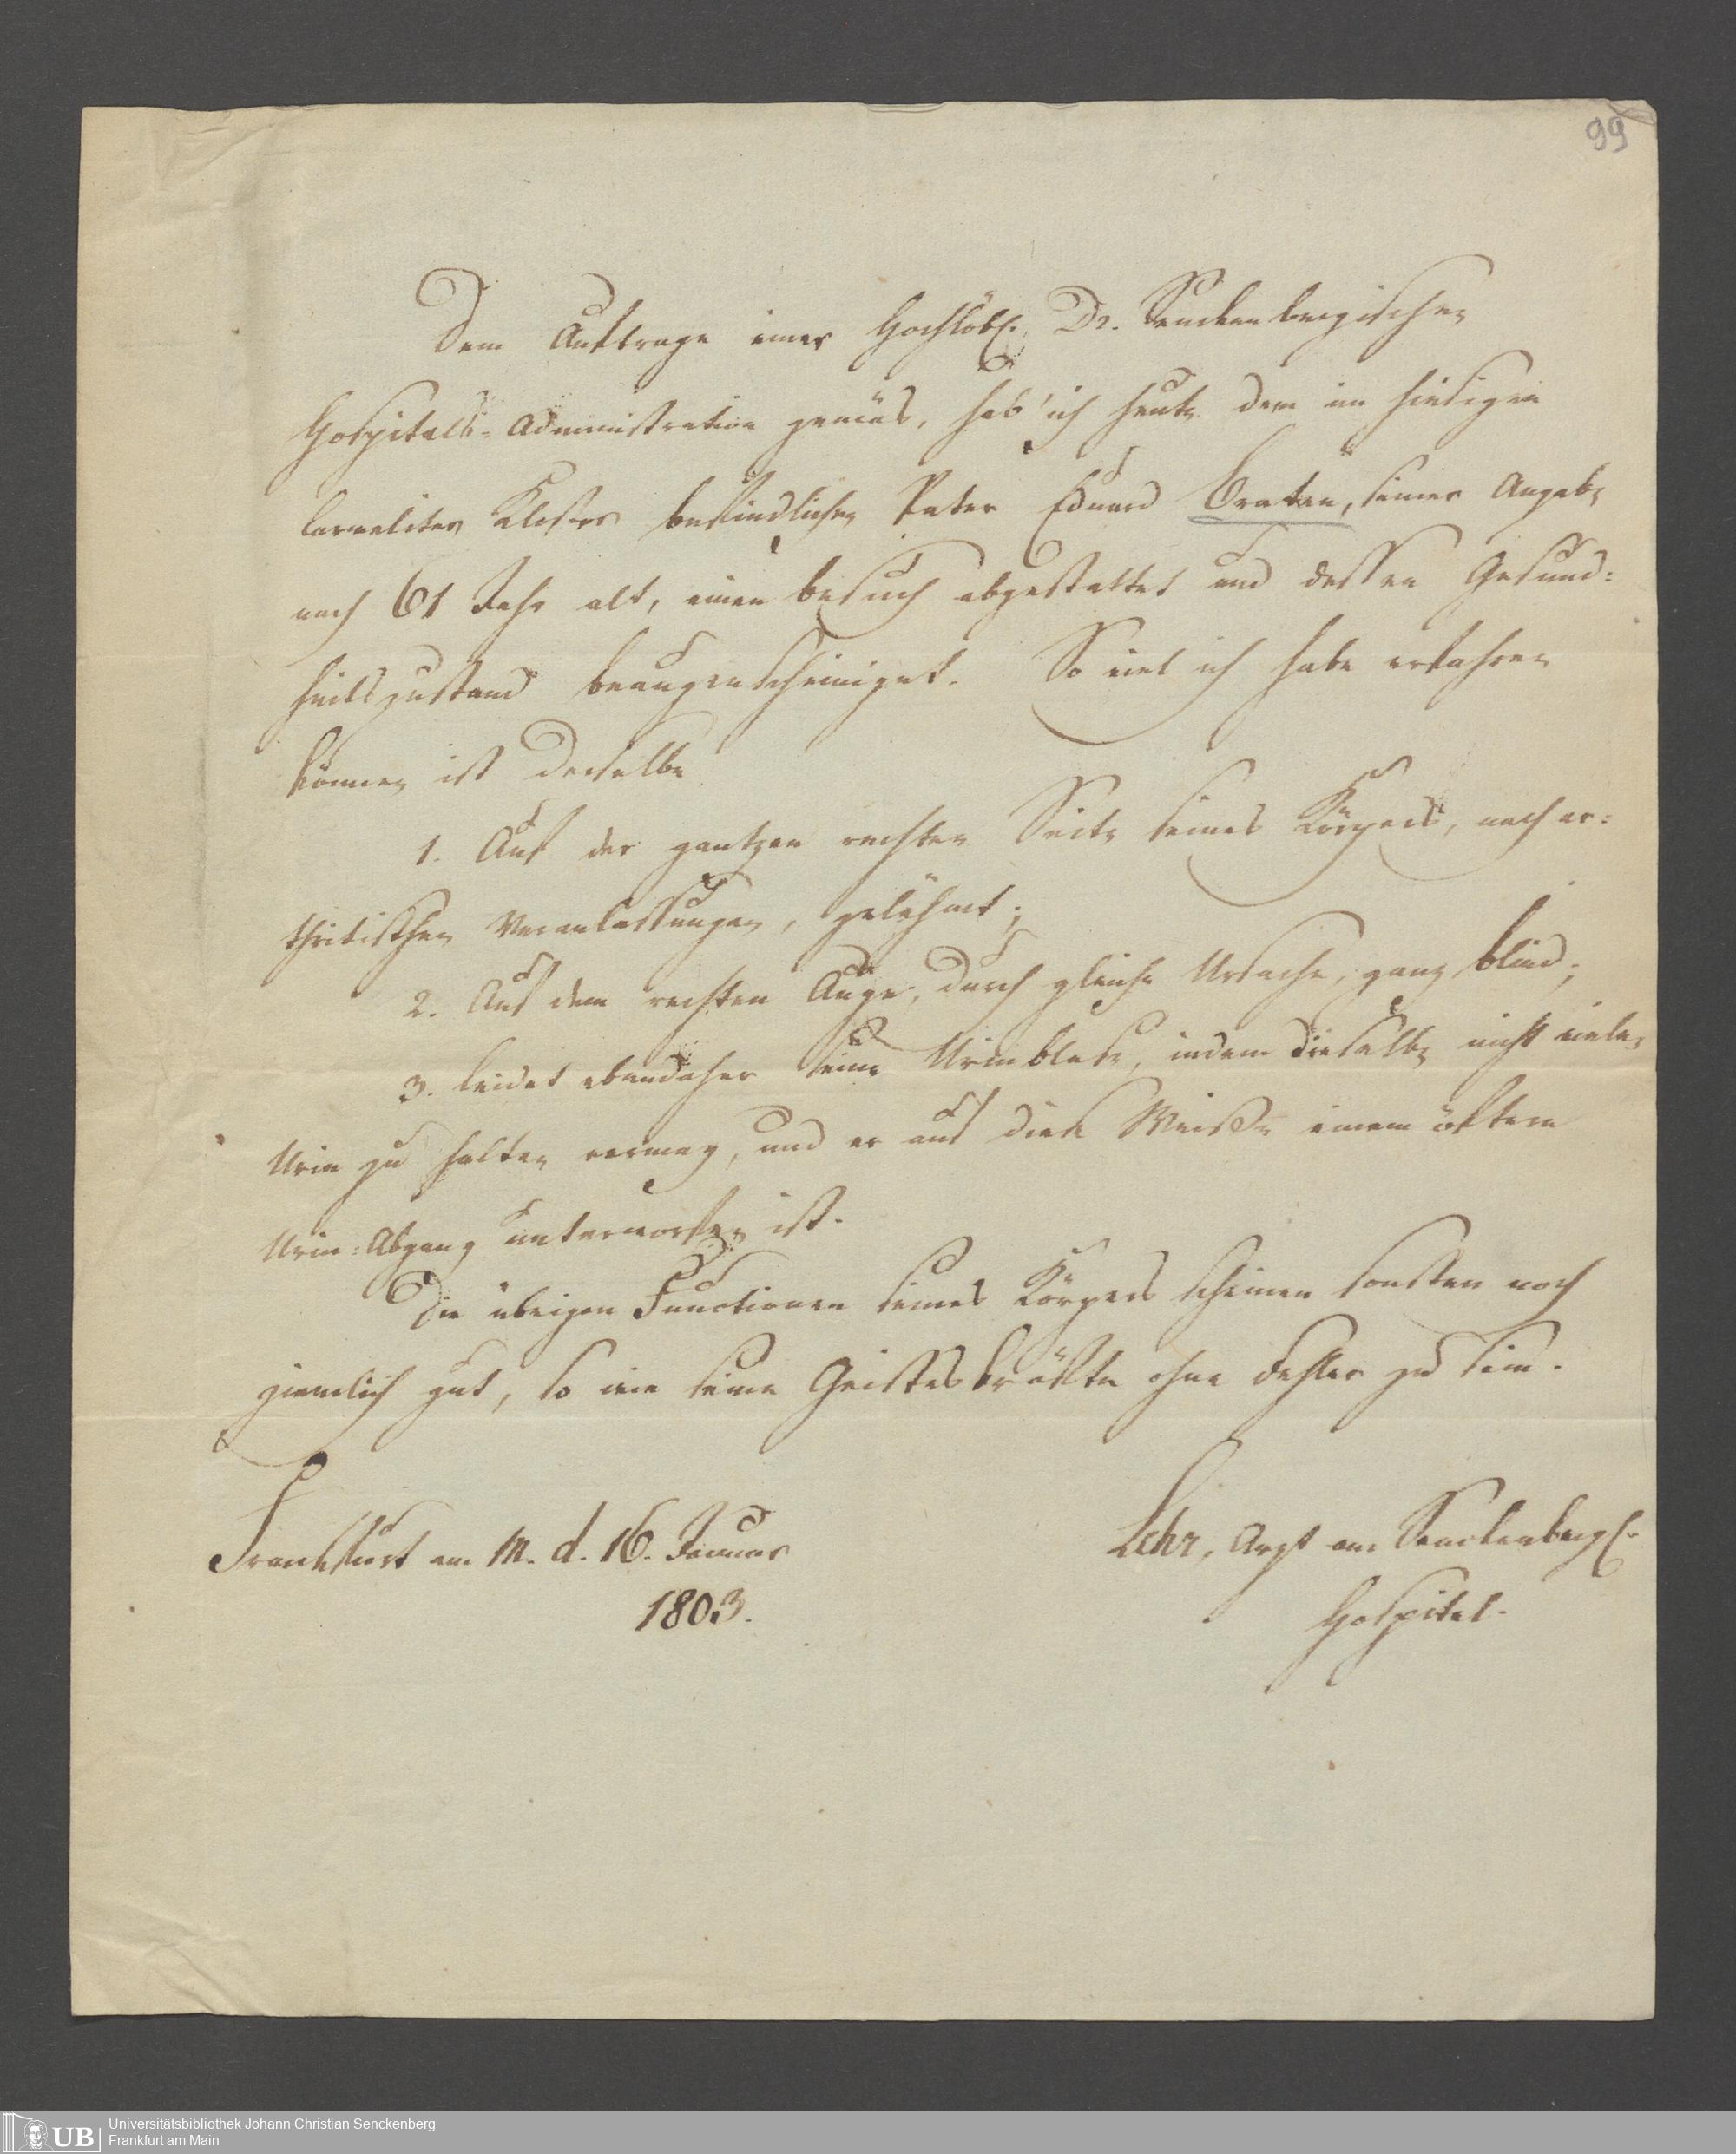 99
Dem Auftrage einer Hochlöbl. Dr. Senckenbergischen
Hospitals-Administration gemäs, hab' ich heute dem im hiesigen
Carmeliter Kloster befindlichen Pater Eduard Craten, seiner Angabe
nach 61 Jahr alt, einen Besuch abgestattet und dessen Gesund=
heitszustand beaugenscheiniget. So viel ich habe erfahren
können ist derselbe
1. Auf der gantzen rechten Seite seines Körpers, nach ar=
thritischen Veranlassungen, gelähmt;
2. Auf dem rechten Auge, durch gleiche Ursache, ganz blind;
3. leidet ebendaher seine Urinblase, indem dieselbe nicht vielen
Urin zu halten vermag, und er auf diese Weiße einem öftern
Urin=Abgang unterworfen ist.
Die übrigen Functionen seines Körpers scheinen sonsten noch
ziemlich gut, so wie seine Geisteskräfte ohne Fehler zu sein.
Frankfurt am M. d. 16. Januar
1803.
Lehr, Arzt am Senckenbergl.
Hospital.
UB
Universitätsbibliothek Johann Christian Senckenberg
Frankfurt am Main